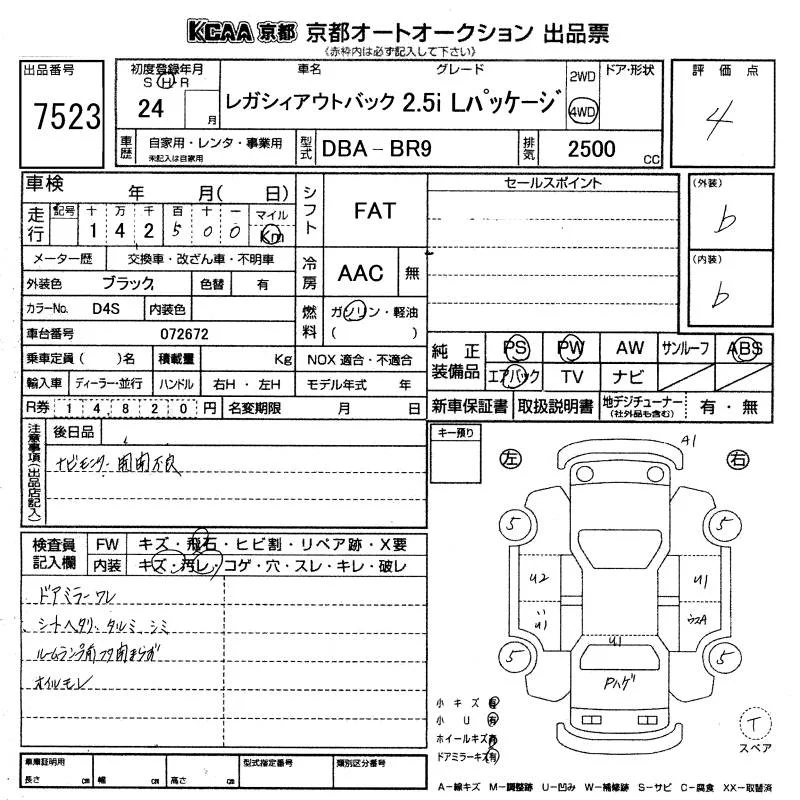 KCAA 京都 京都オートオークション 出品票
《赤枠内は必ず記入して下さい》
出品番号
7523
初度登録年月
S H R
24 月
車名 グレード
レガシィアウトバック 2.5i Lパッケージ
2WD
4WD
ドア・形状
評価点
4
車歴
自家用・レンタ・事業用
未記入は自家用
型式 DBA-BR9
排気 2500 CC
車検 年 月( 日)
走行 記号 十 万 千 百 十 一 マイル
1 4 2 5 0 0 Km
メーター歴 交換車・改ざん車・不明車
外装色 ブラック 色替 有
カラーNo. D4S 内装色
車台番号 072672
乗車定員( )名 積載量 Kg
輸入車 ディーラー・並行 ハンドル 右H・左H
R券 1 4,8 2 0 円 名変期限 月 日
シフト FAT
冷房 AAC 無
燃料 ガソリン・軽油
( )
NOX 適合・不適合
モデル年式 年
セールスポイント
(外装)
b
(内装)
b
純正装備品
PS PW AW サンルーフ ABS
エアバック TV ナビ
新車保証書 取扱説明書 地デジチューナー(社外品も含む) 有・無
注意事項(出品店記入)
後日品
ナビモニター開閉不良
検査員記入欄
FW キズ・飛石・ヒビ割・リペア跡・X要
内装 キズ・汚レ・コゲ・穴・スレ・キレ・破レ
ドアミラーワレ
シートヘタリ、タルミ、シミ
オイルモレ
キー預り
左 右
A1
5 5
U2 U1
U1
U1
5 5
Pハゲ
小キズ 有
小U 有
ホイールキズ 有
ドアミラーキズ 有
T
スペア
車庫証明用
長さ cm 幅 cm 高さ cm
型式指定番号
類別区分番号
A-線キズ M-調整跡 U-凹み W-補修跡 S-サビ C-腐食 XX-取替済